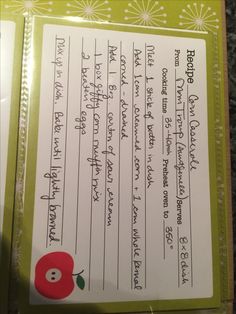 Recipe Corn Casserole
From Mom Troup (handwritten) Serves 8x8 dish
Cooking time 35-40min Preheat oven to 350°
Melt 1 stick of butter in dish
Add 1 can creamed corn + 1 can whole kernal
corned - drained
Add 1 8oz carton of sour cream
1 box giffy corn muffin mix
2 beaten eggs
Mix up in dish. Bake until lightly browned.